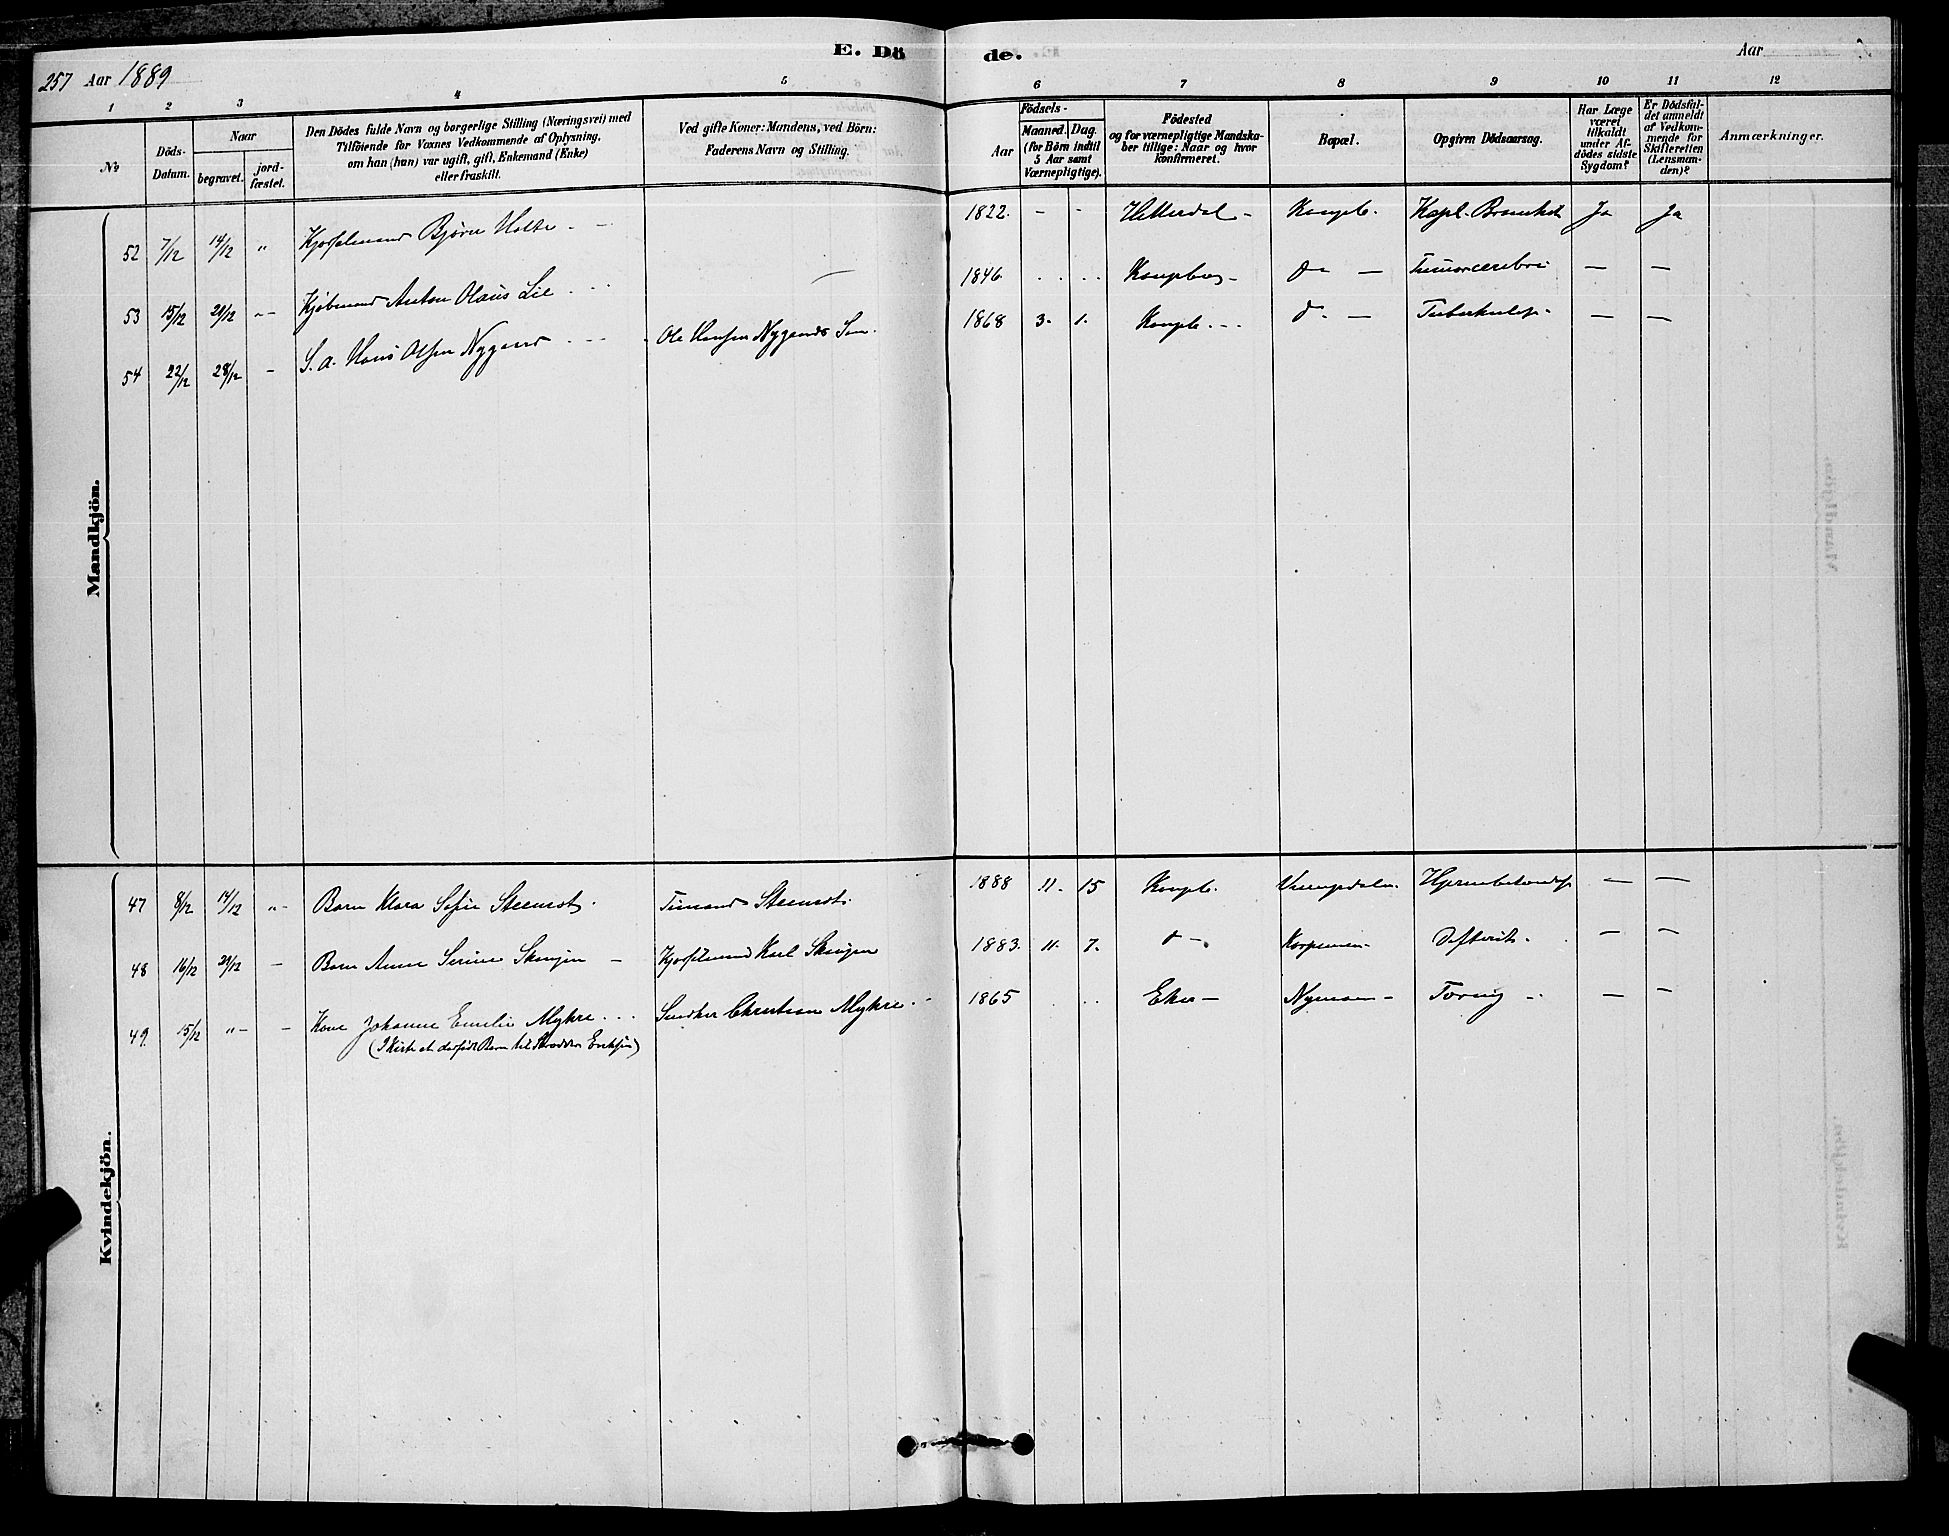 257 Aar 1889
E. Dö de.
Aar
1 2 3 4 5 6 7 8 9 10 11 12
No
Döds-Datum.
Naar
begravet.
jordfæstet.
Den Dödes fulde Navn og borgerlige Stilling (Næringsvei) med
Tilföiende for Voxnes Vedkommende af Oplysning,
om han (hun) var ugift, gift, Enkemand (Enke)
eller fraskilt.
Ved gifte Koner: Mandens, ved Börn:
Faderens Navn og Stilling.
Födsels-
Aar
Maaned. Dag.
(for Börn indtil
5 Aar samt
Værnepligtige).
Födested
og for værnepligtige Mandska-
ber tillige: Naar og hvor
konfirmeret.
Bopæl.
Opgiven Dödsaarsag.
Har Læge
været
tilkaldt
under Af-
dödes sidste
Sygdom?
Er Dödsfal-
det anmeldt
af Vedkom-
mende for
Skifteretten
(Lensman-
den)?
Anmærkninger.
Mandkjön.
52 7/12 14/12 " Bjørn Holte - 1822. - - Hitterdal - Kongsb. Ja Ja
53 15/12 21/12 " - Kjøbmand Anton Olaus Lie 1846. Kongsberg - do - Tumor cerebri - -
54 22/12 28/12 - S. a. Hans Olsen Nygaard Ole Hansen Nygaards Søn. 1868 3. 1. Kongsb. do - Tuberkulos. - -
Kvindekjön.
47 8/12 14/12 " - Barn Klara Sofie Steenrot. 1888 11. 15 Kongsb. Hjernebetænds. - -
48 16/12 29/12 - Barn Anna Serine - Karl 1883. 11. 7. do - Difterit. - -
49. 15/12 " - - Kone Johanne Emilie Myhre Christian Myhre. 1865 Eker - Nymoen - Tæring - - -
(I Kiste et dødfødt Barn til Skrædder Eriksen)